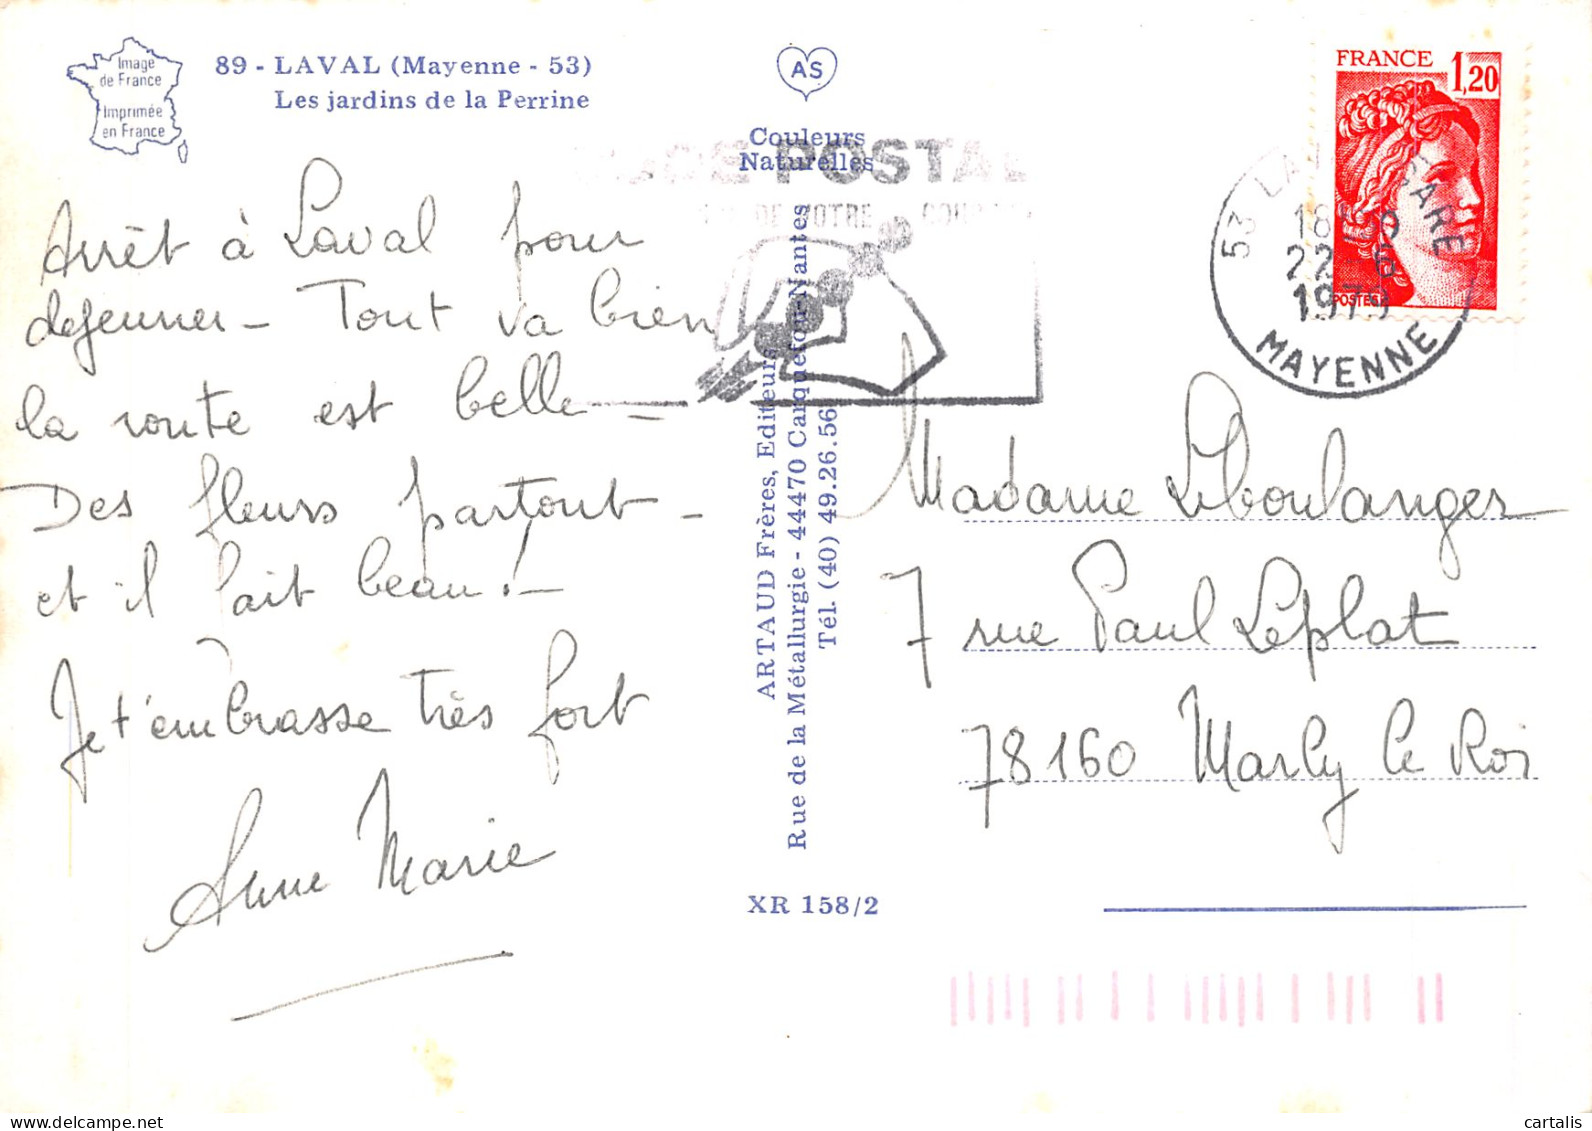 Image
de France
Imprimée
en France
89 - LAVAL (Mayenne - 53)
Les jardins de la Perrine
AS
Couleurs
Naturelles
CODE POSTAL
DE VOTRE
FRANCE 1,20
POSTES
53 LAVAL GARE
18
22 - 6
1979
MAYENNE
Arrêt à Laval pour
dejeuner - Tout va bien
la route est belle -
Des fleurs partout -
et il fait beau ! -
Je t'embrasse très fort
Anne Marie
ARTAUD Frères, Editeurs
Rue de la Métallurgie - 44470 Carquefou-Nantes
Tél. (40) 49.26.56
XR 158/2
Madame Leboulanger
7 rue Paul Leplat
78160 Marly le Roi
cartalis